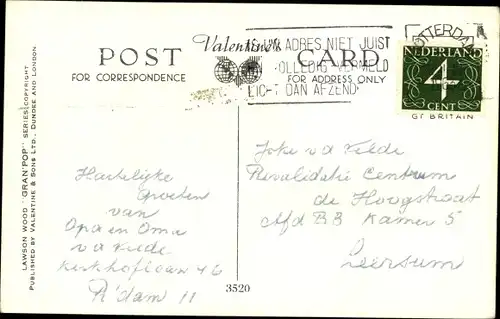 POST CARD
Valentine's
FOR CORRESPONDENCE
FOR ADDRESS ONLY
ADRES NIET JUIST
VOLLEDIG VERMELD
LICHT DAN AFZEND
ROTTERDAM
NEDERLAND
4
CENT
GT BRITAIN
LAWSON WOOD "GRAN'POP" SERIES COPYRIGHT
PUBLISHED BY VALENTINE & SONS LTD., DUNDEE AND LONDON.
Hartelijke
Groeten
van
Opa en Oma
v d Velde
Kerkhoflaan 46
R'dam 11
3520
Joke v d Velde
Revalidatie Centrum
de Hoogstraat
Afd B3 Kamer 5
Leersum